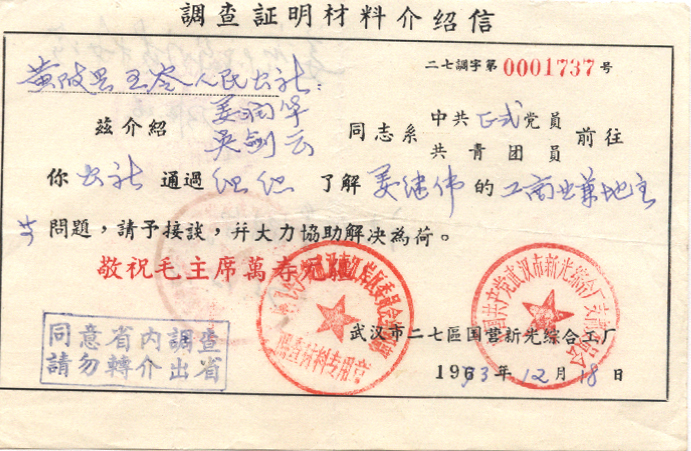 調查証明材料介绍信
二七調字第 0001737 号
黄陂县王家人民公社:
兹介紹 姜润华 吴剑云 同志系 中共正式党員 共青团員 前往
你 公社 通過 组织 了解 姜继伟 的 工商业兼地主
等 問題，請予接談，并大力協助解决為荷。
敬祝毛主席萬寿无疆
武汉市二七區国营新光綜合工厂
1963 年 12 月 18 日
同意省内調查
請勿轉介出省
調查材料专用章